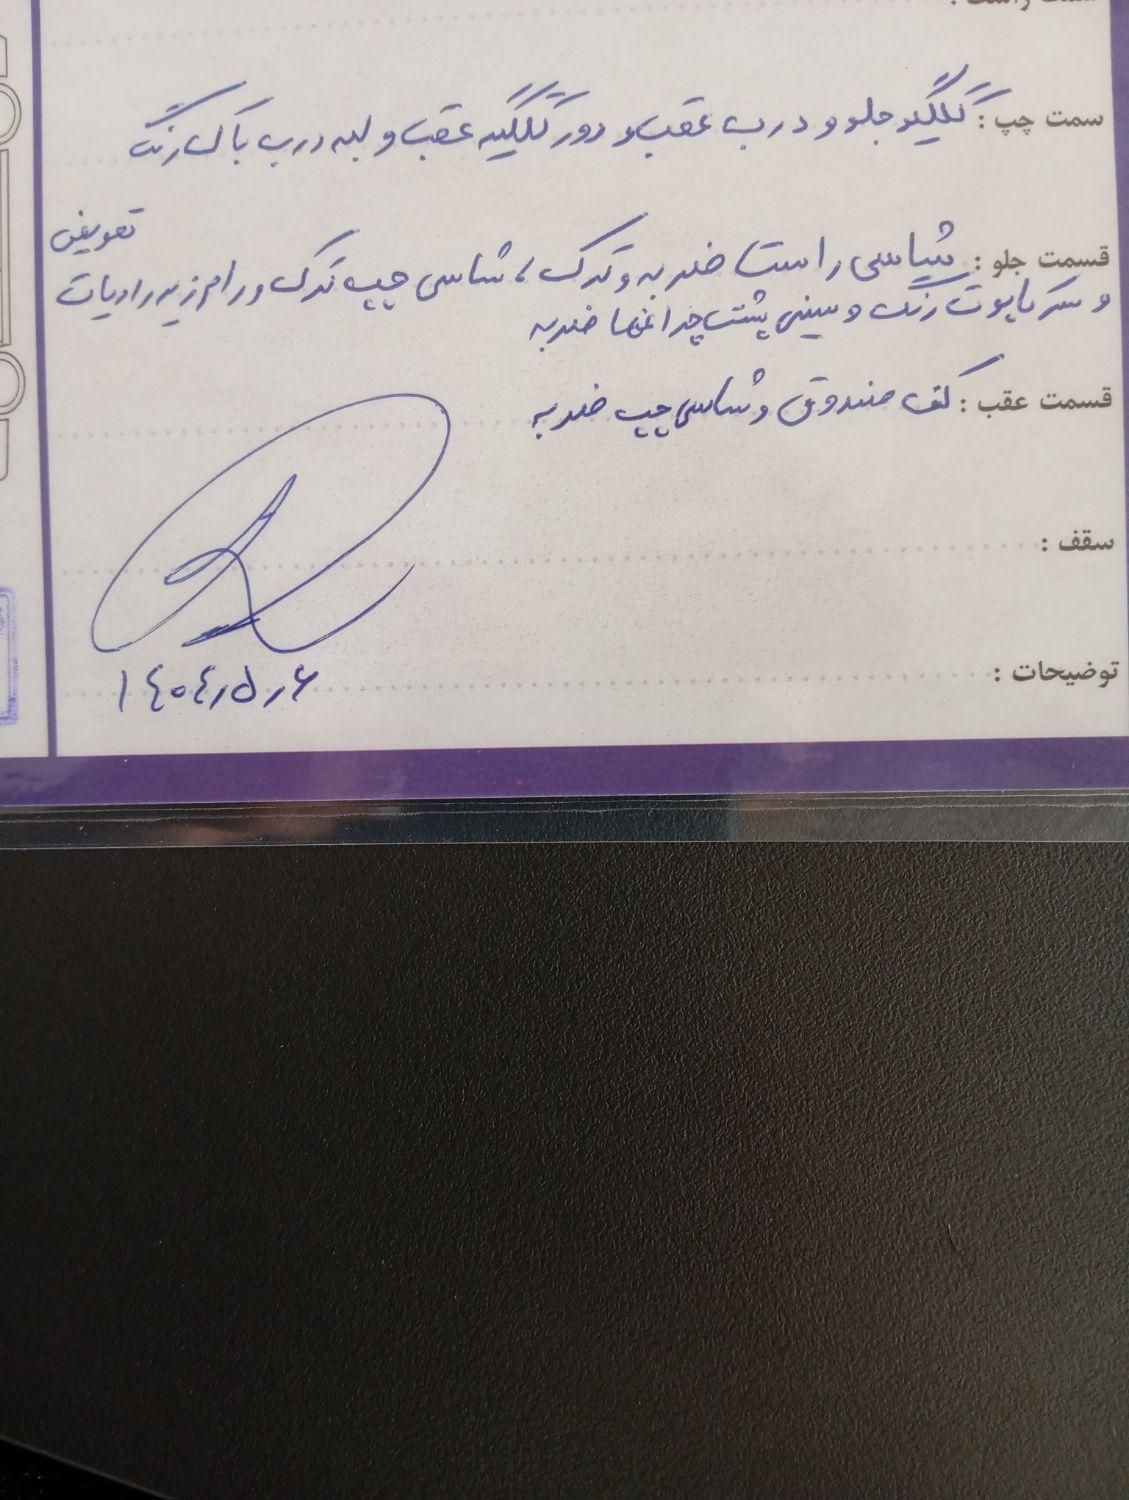 سمت راست :
سمت چپ : گلگیر جلو و درب عقب و دور گلگیر عقب و لبه درب باک رنگ
تعویض
قسمت جلو : شاسی راست ضربه و ترک ، شاسی چپ ترک و رام زیر رادیات
و سر کاپوت رنگ و سینی پشت چراغها ضربه
قسمت عقب : کف صندوق و شاسی چپ ضربه
سقف :
۱۴۰۴/۵/۶
توضیحات :